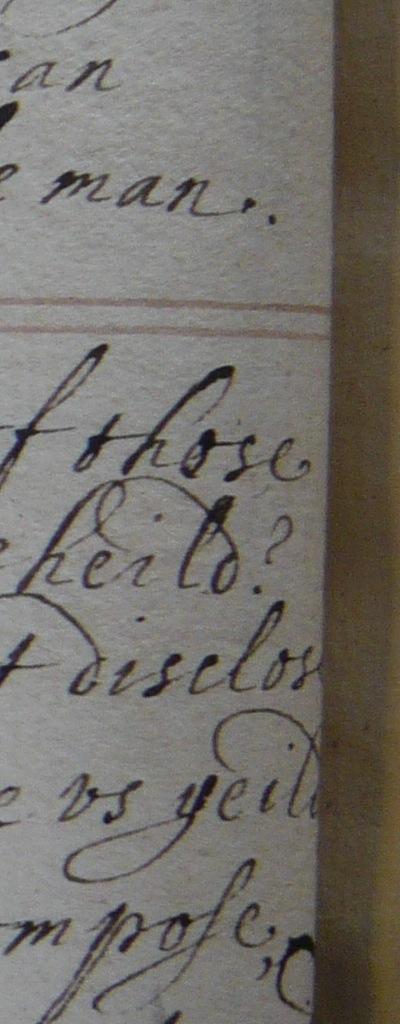 an
e man.
f those
eheild?
t disclos
e vs yeild
ompose,